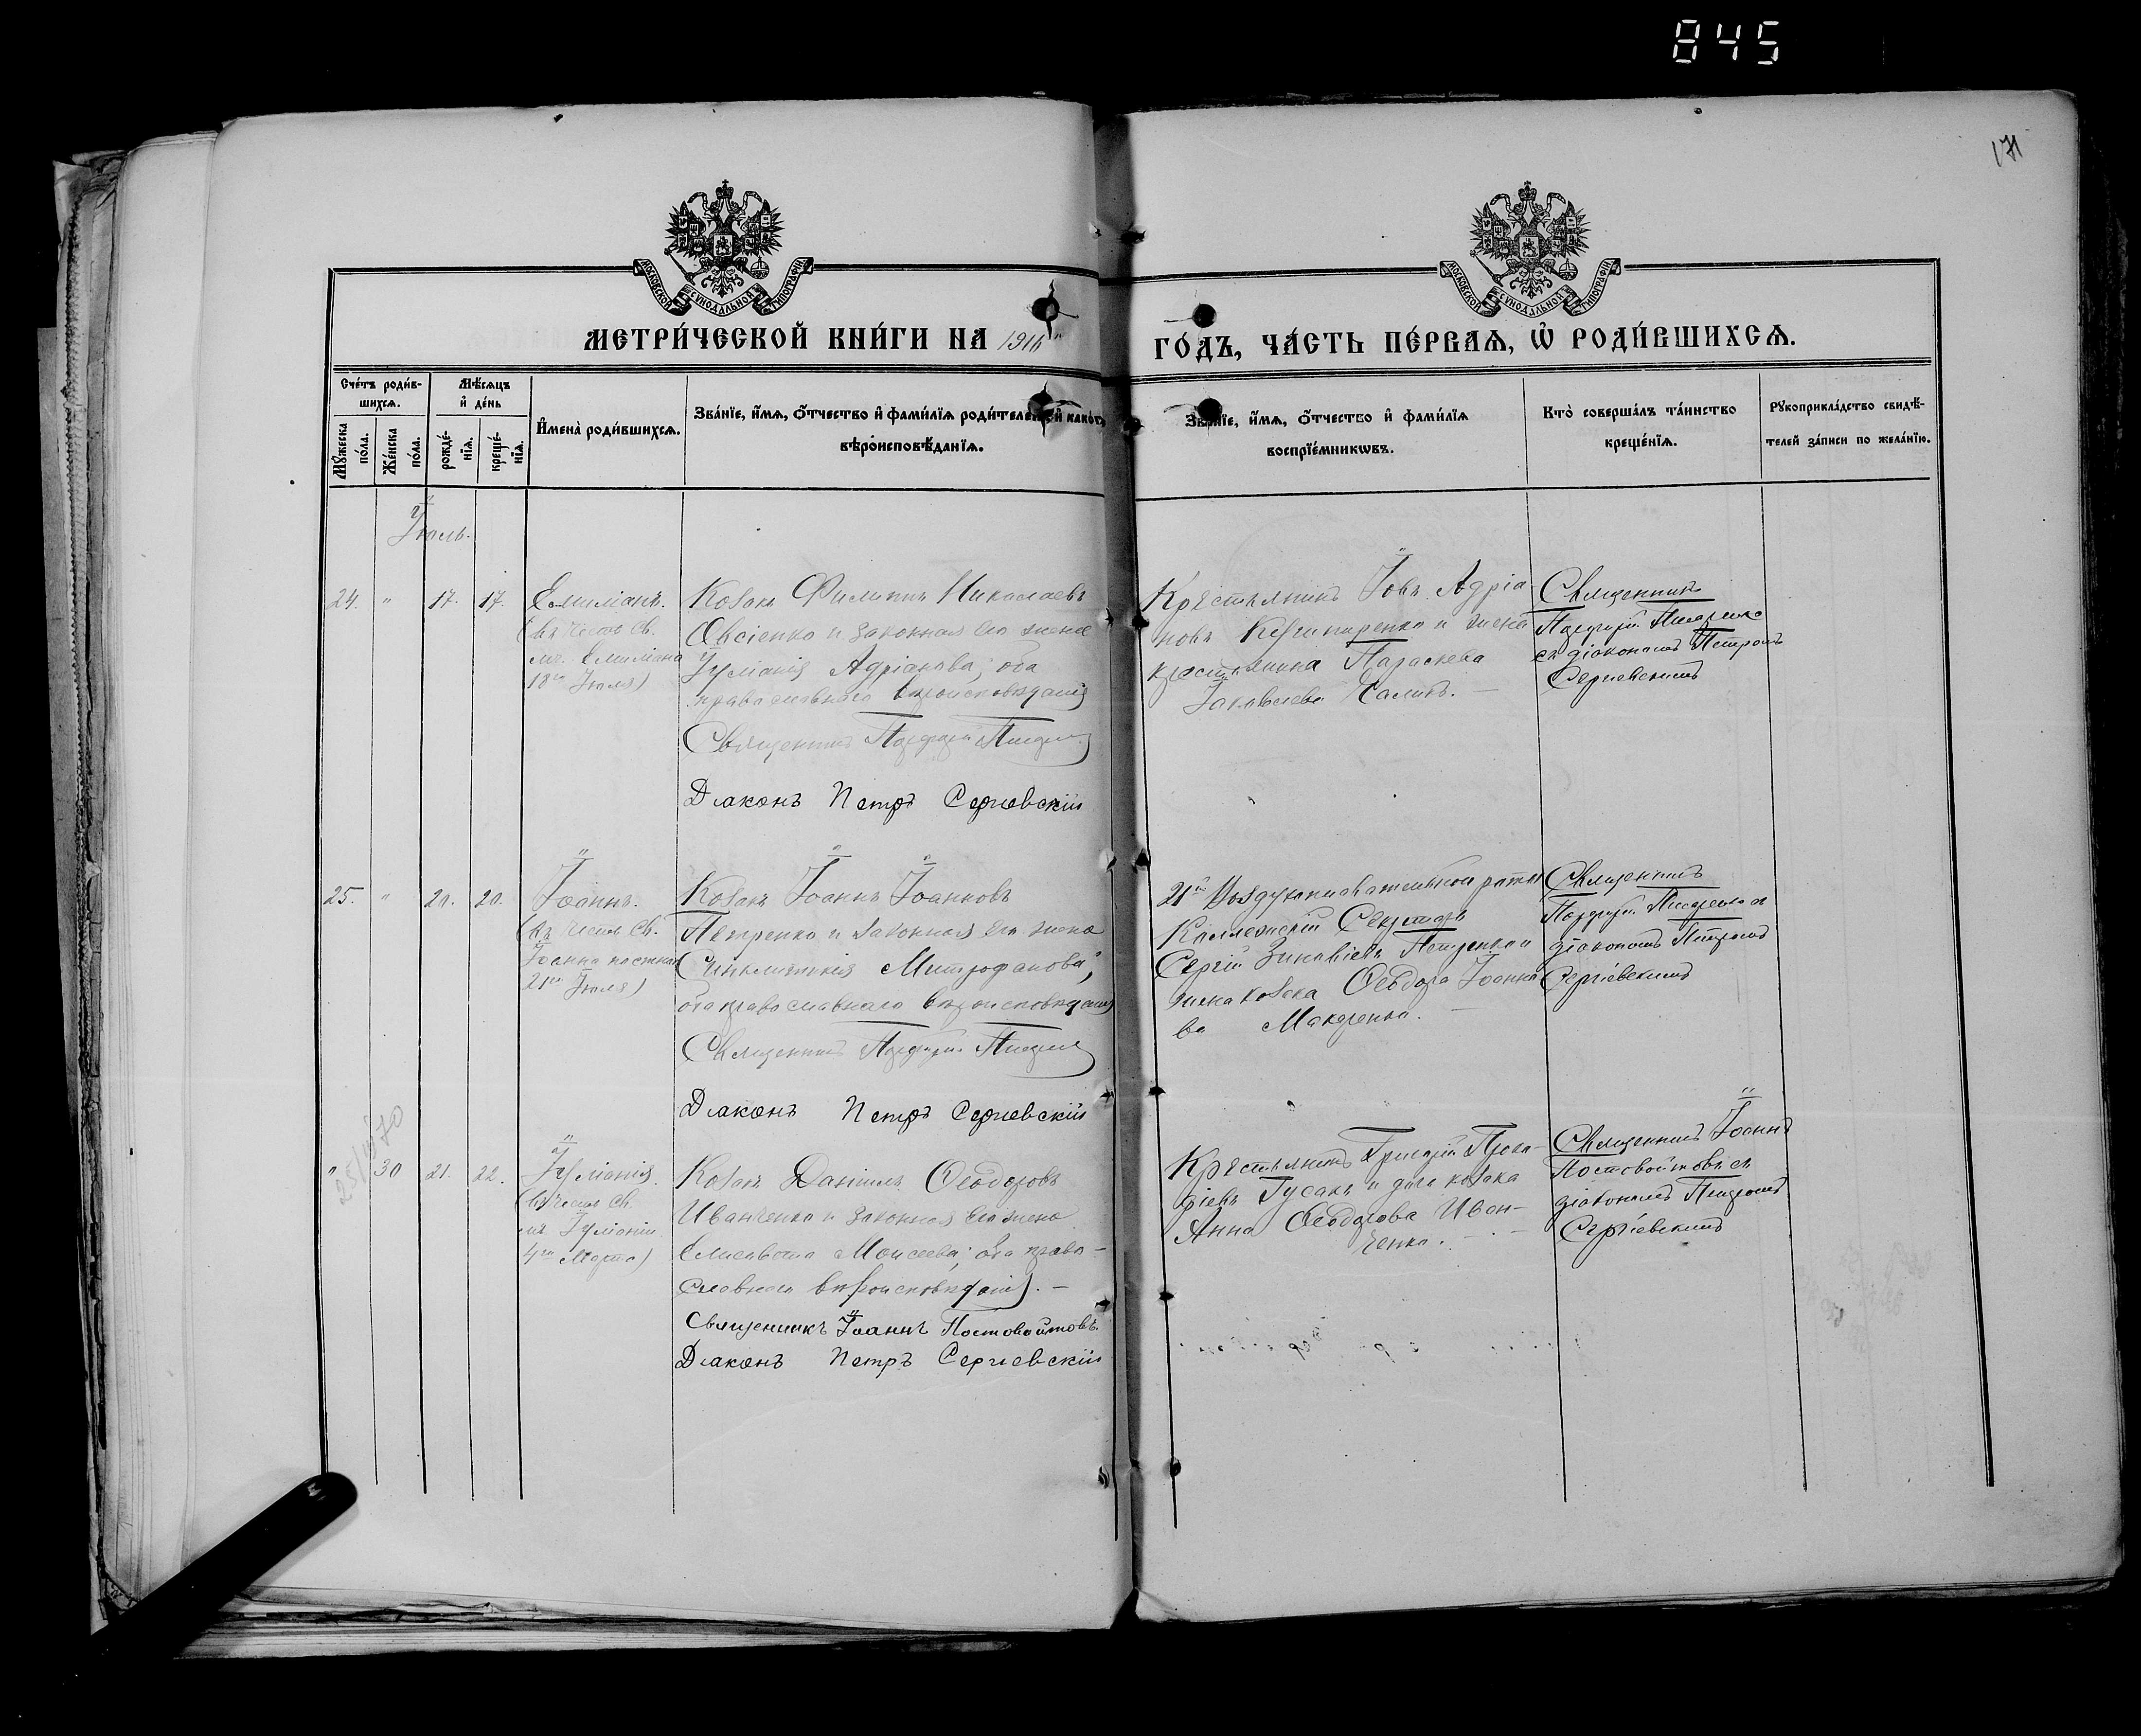 845
171
МОСКОВСКОЙ СѴНОДАЛЬНОЙ ТИПОГРАФІИ
МОСКОВСКОЙ СѴНОДАЛЬНОЙ ТИПОГРАФІИ
МЕТРИ́ЧЕСКОЙ КНИ́ГИ НА 1916
ГО́ДЪ, ЧА́СТЬ ПЕ́РВАѦ, Ѡ҆ РОДИ́ВШИХСѦ.
Сче́тъ роди́в-
шихсѧ.
Мꙋ́жеска
по́ла.
Же́нска
по́ла.
Мѣ́сѧцъ
и҆ де́нь
рожде́-
нїѧ.
креще́-
нїѧ.
И҆мена̀ роди́вшихсѧ.
Зва́нїе, и҆́мѧ, ѻ҆́тчество и҆ фами́лїѧ роди́телей, и҆ како́гѡ
вѣроисповѣ́данїѧ.
Зва́нїе, и҆́мѧ, ѻ҆́тчество и҆ фами́лїѧ
воспрїе́мникѡвъ.
Кто̀ соверша́лъ та́инство
креще́нїѧ.
Рꙋкоприкла́дство свидѣ́-
телей за́писи по жела́нїю.
Іюль.
24. " 17. 17.
Емиліанъ.
(въ честь св.
мч. Емиліана
18го Іюля)
Козакъ Филиппъ Николаевъ
Овсіенко и законная его жена
Іуліанія Адріанова; оба
православнаго вѣроисповѣданія
Священникъ Порфирій
Діаконъ Петръ Сергіевскій
Крестьянинъ Іовъ Адріа-
новъ и жена
крестьянина Параскева
Іаковлева
Священникъ
Порфирій
съ діакономъ Петромъ
Сергіевскимъ
25. " 20. 20.
Іоаннъ.
(въ честь св.
Іоанна постника
21го Іюля)
Козакъ Іоаннъ Іоанновъ
Петренко и законная его жена
Синклитикія Митрофанова;
оба православнаго вѣроисповѣданія
Священникъ Порфирій
Діаконъ Петръ Сергіевскій
21й Воздухоплавательной роты
Коллежскій Секретарь
Сергій Зиновіевъ Петренко и
жена козака Ѳеодора Іоанно
ва Макаренко.
Священникъ
Порфирій
діакономъ Петромъ
Сергіевскимъ
" 30 21. 22.
Іуліанія.
(въ честь св.
мц. Іуліаніи
4го Марта)
Козакъ Даніилъ Ѳеодоровъ
Иванченко и законная его жена
Елисавета Моисеева; оба право-
славнаго вѣроисповѣданія. -
Священникъ Іоаннъ Постовойтовъ.
Діаконъ Петръ Сергіевскій
Крестьянинъ Григорій Прока-
піевъ Гусакъ и дочь козака
Анна Ѳеодорова Иван-
ченко.
Священникъ Іоаннъ
Постовойтовъ съ
діакономъ Петромъ
Сергіевскимъ